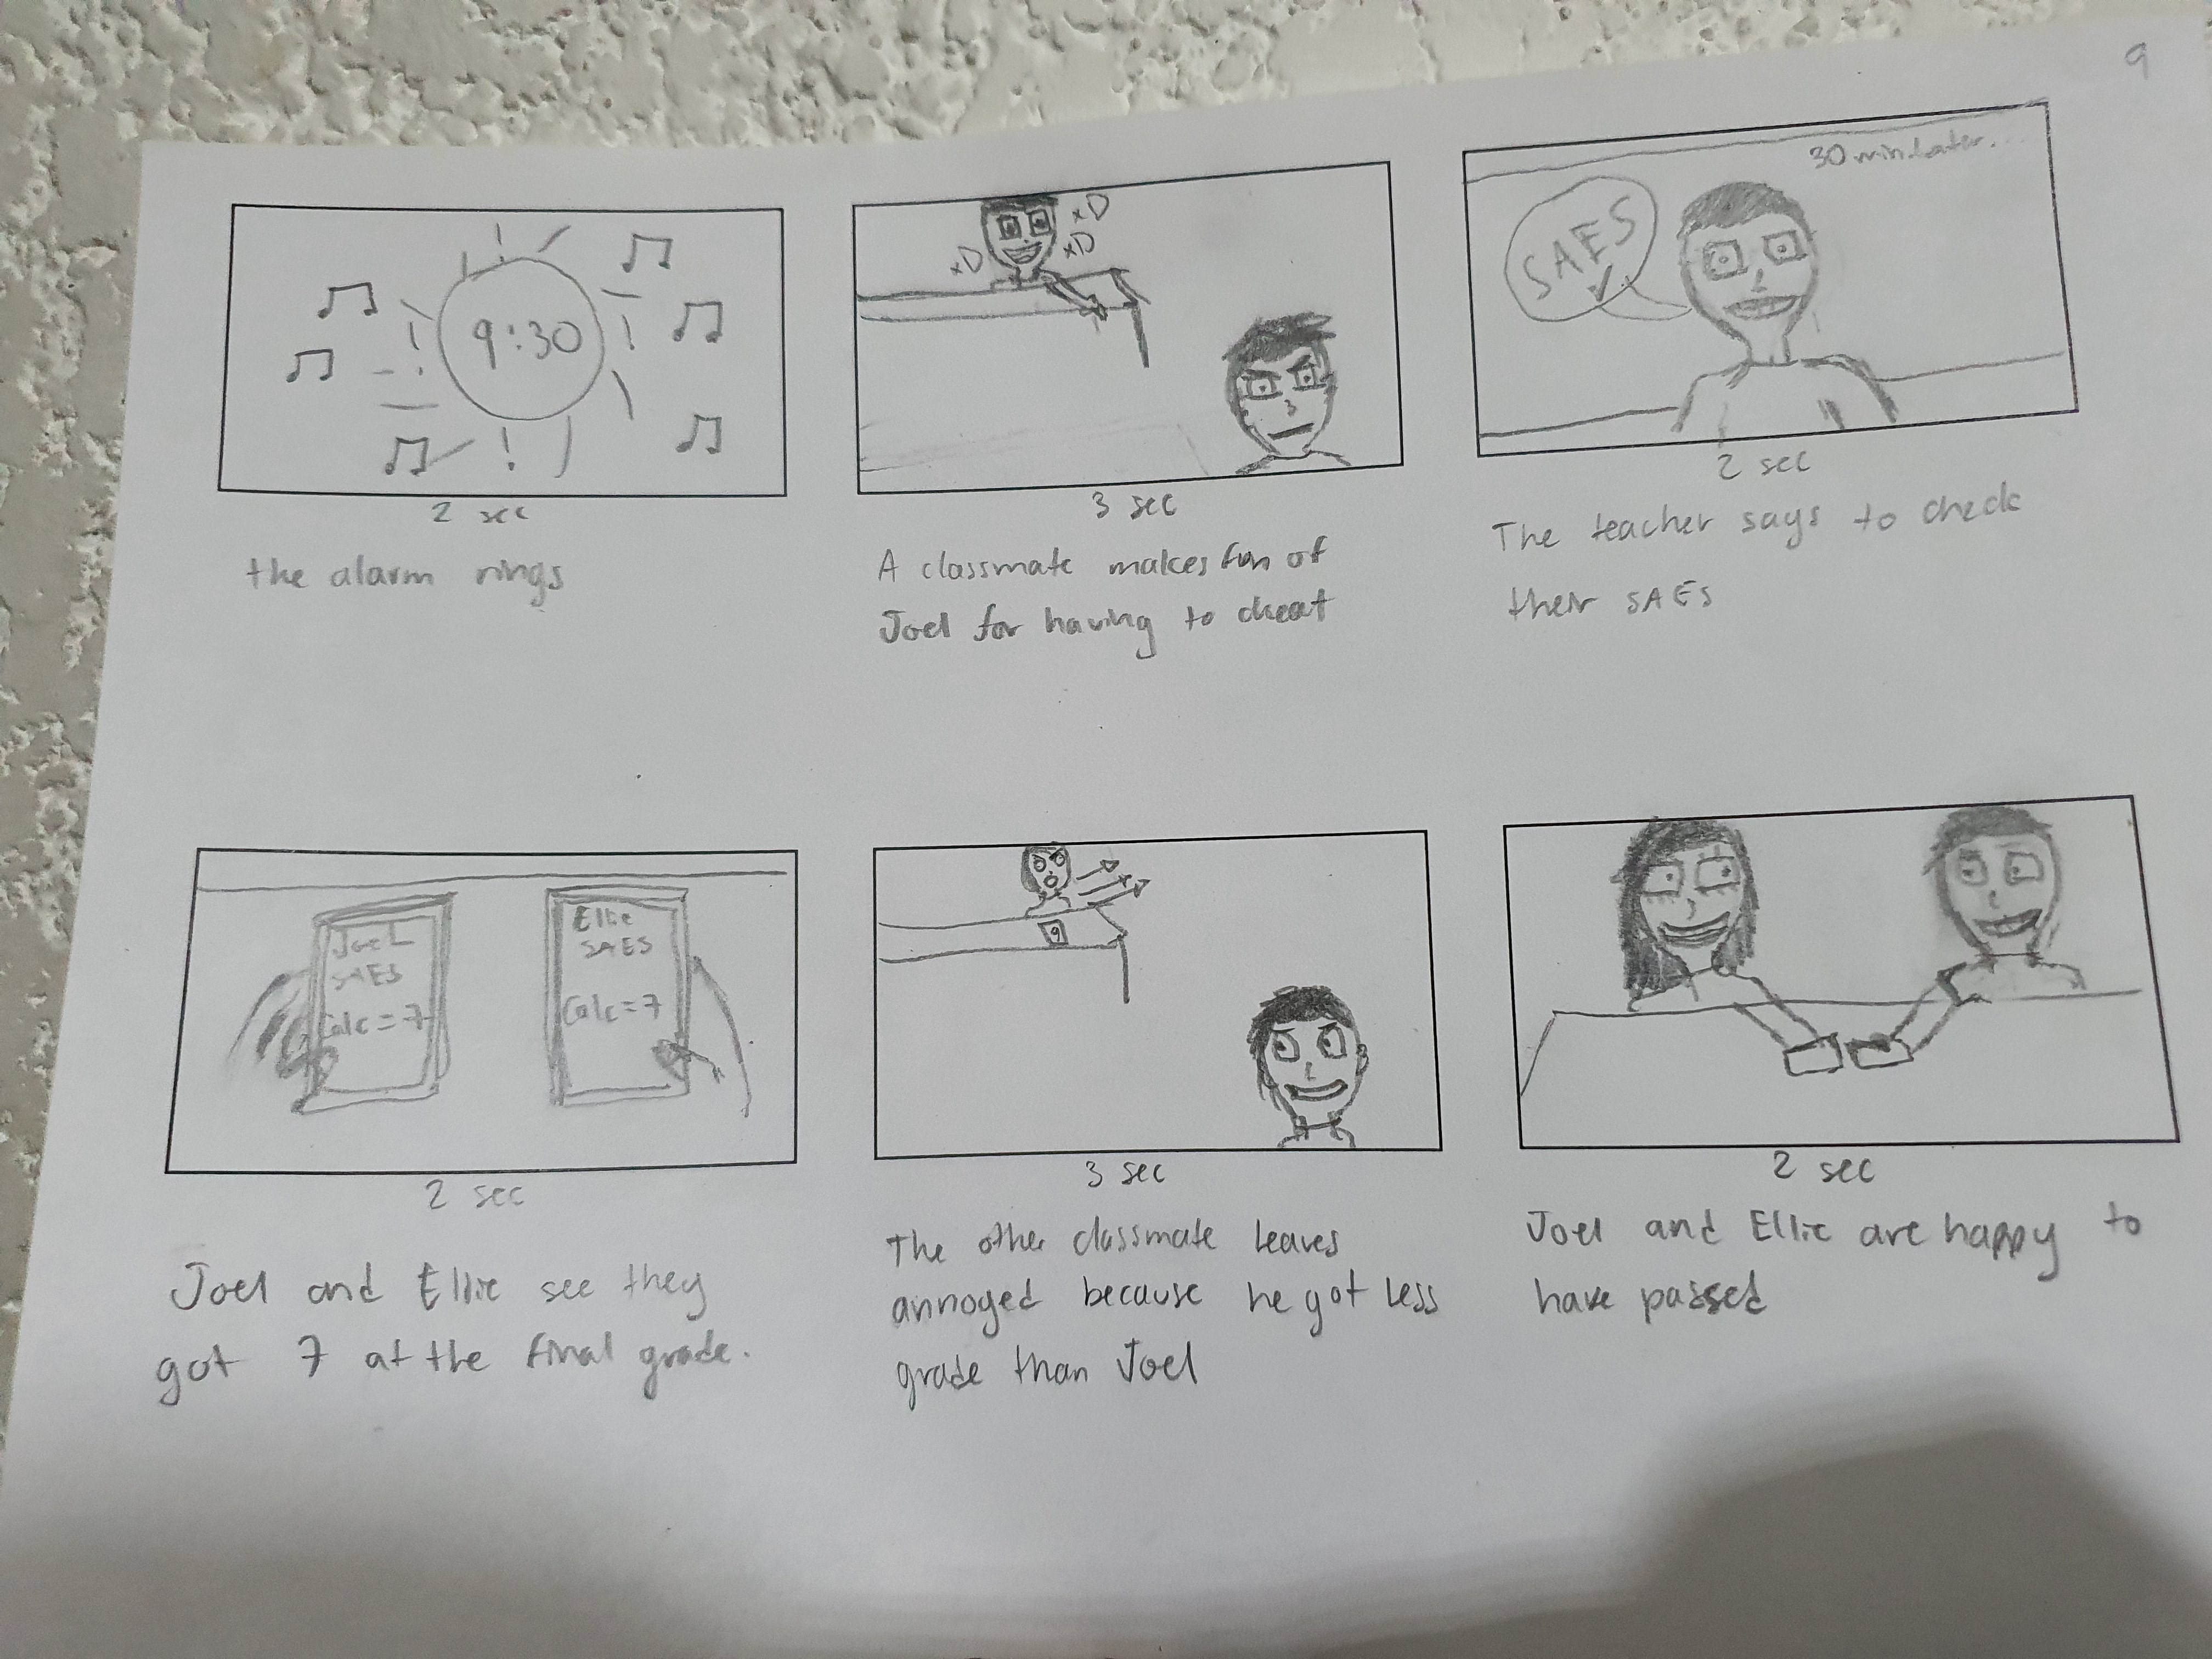 9
9:30
2 sec
the alarm rings
xD
xD
xD
3 sec
A classmate makes fun of
Joel for having to cheat
30 min Later...
SAES
2 sec
The teacher says to check
their SAES
Joel
SAES
Calc=7
Ellie
SAES
Calc=7
2 sec
Joel and Ellie see they
got 7 at the final grade.
9
3 sec
The other classmate leaves
annoyed because he got less
grade than Joel
2 sec
Joel and Ellie are happy to
have passed